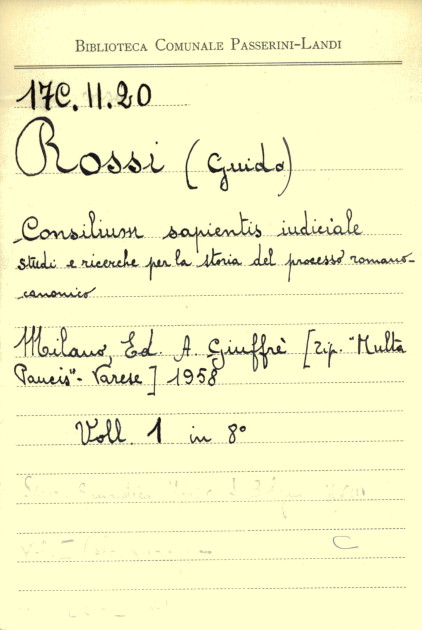 BIBLIOTECA COMUNALE PASSERINI-LANDI
17C.II.20
Rossi (Guido)
Consilium sapientis iudiciale
studi e ricerche per la storia del processo romano-
canonico
Milano, Ed. A. Giuffrè [tip. "Multa
Paucis" - Varese] 1958
Voll. 1 in 8°
C